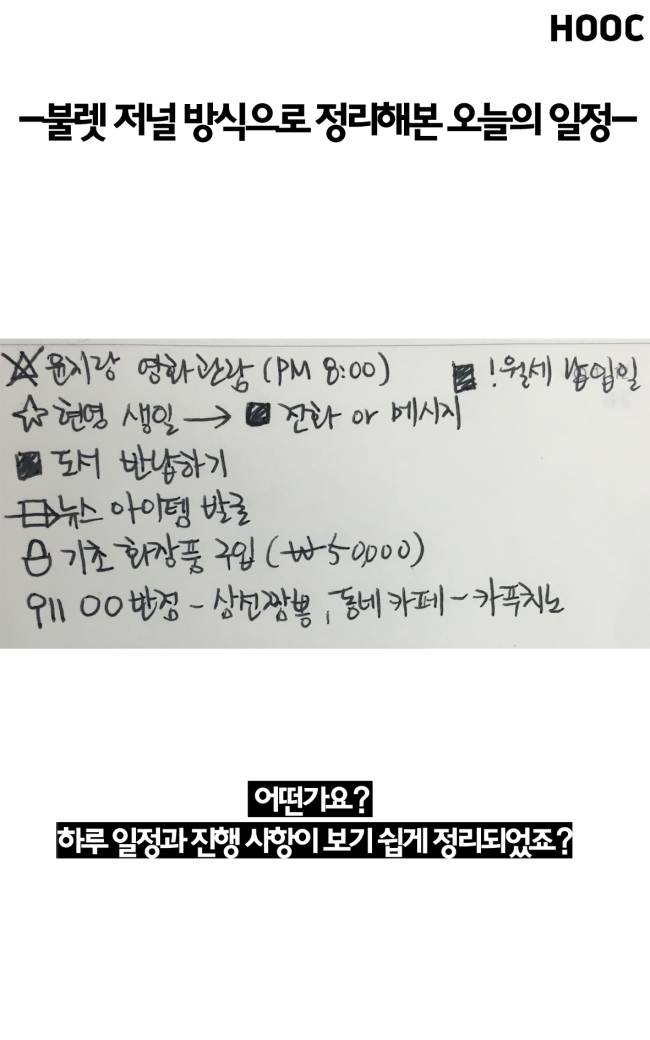 HOOC
-불렛 저널 방식으로 정리해본 오늘의 일정-
윤지랑 영화관람 (PM 8:00) ! 월세 납입일
현영 생일 → 전화 or 메시지
도서 반납하기
뉴스 아이템 발굴
기초 화장품 구입 (₩50,000)
00반점 - 삼선짬뽕, 동네 카페 - 카푸치노
어떤가요?
하루 일정과 진행 사항이 보기 쉽게 정리되었죠?